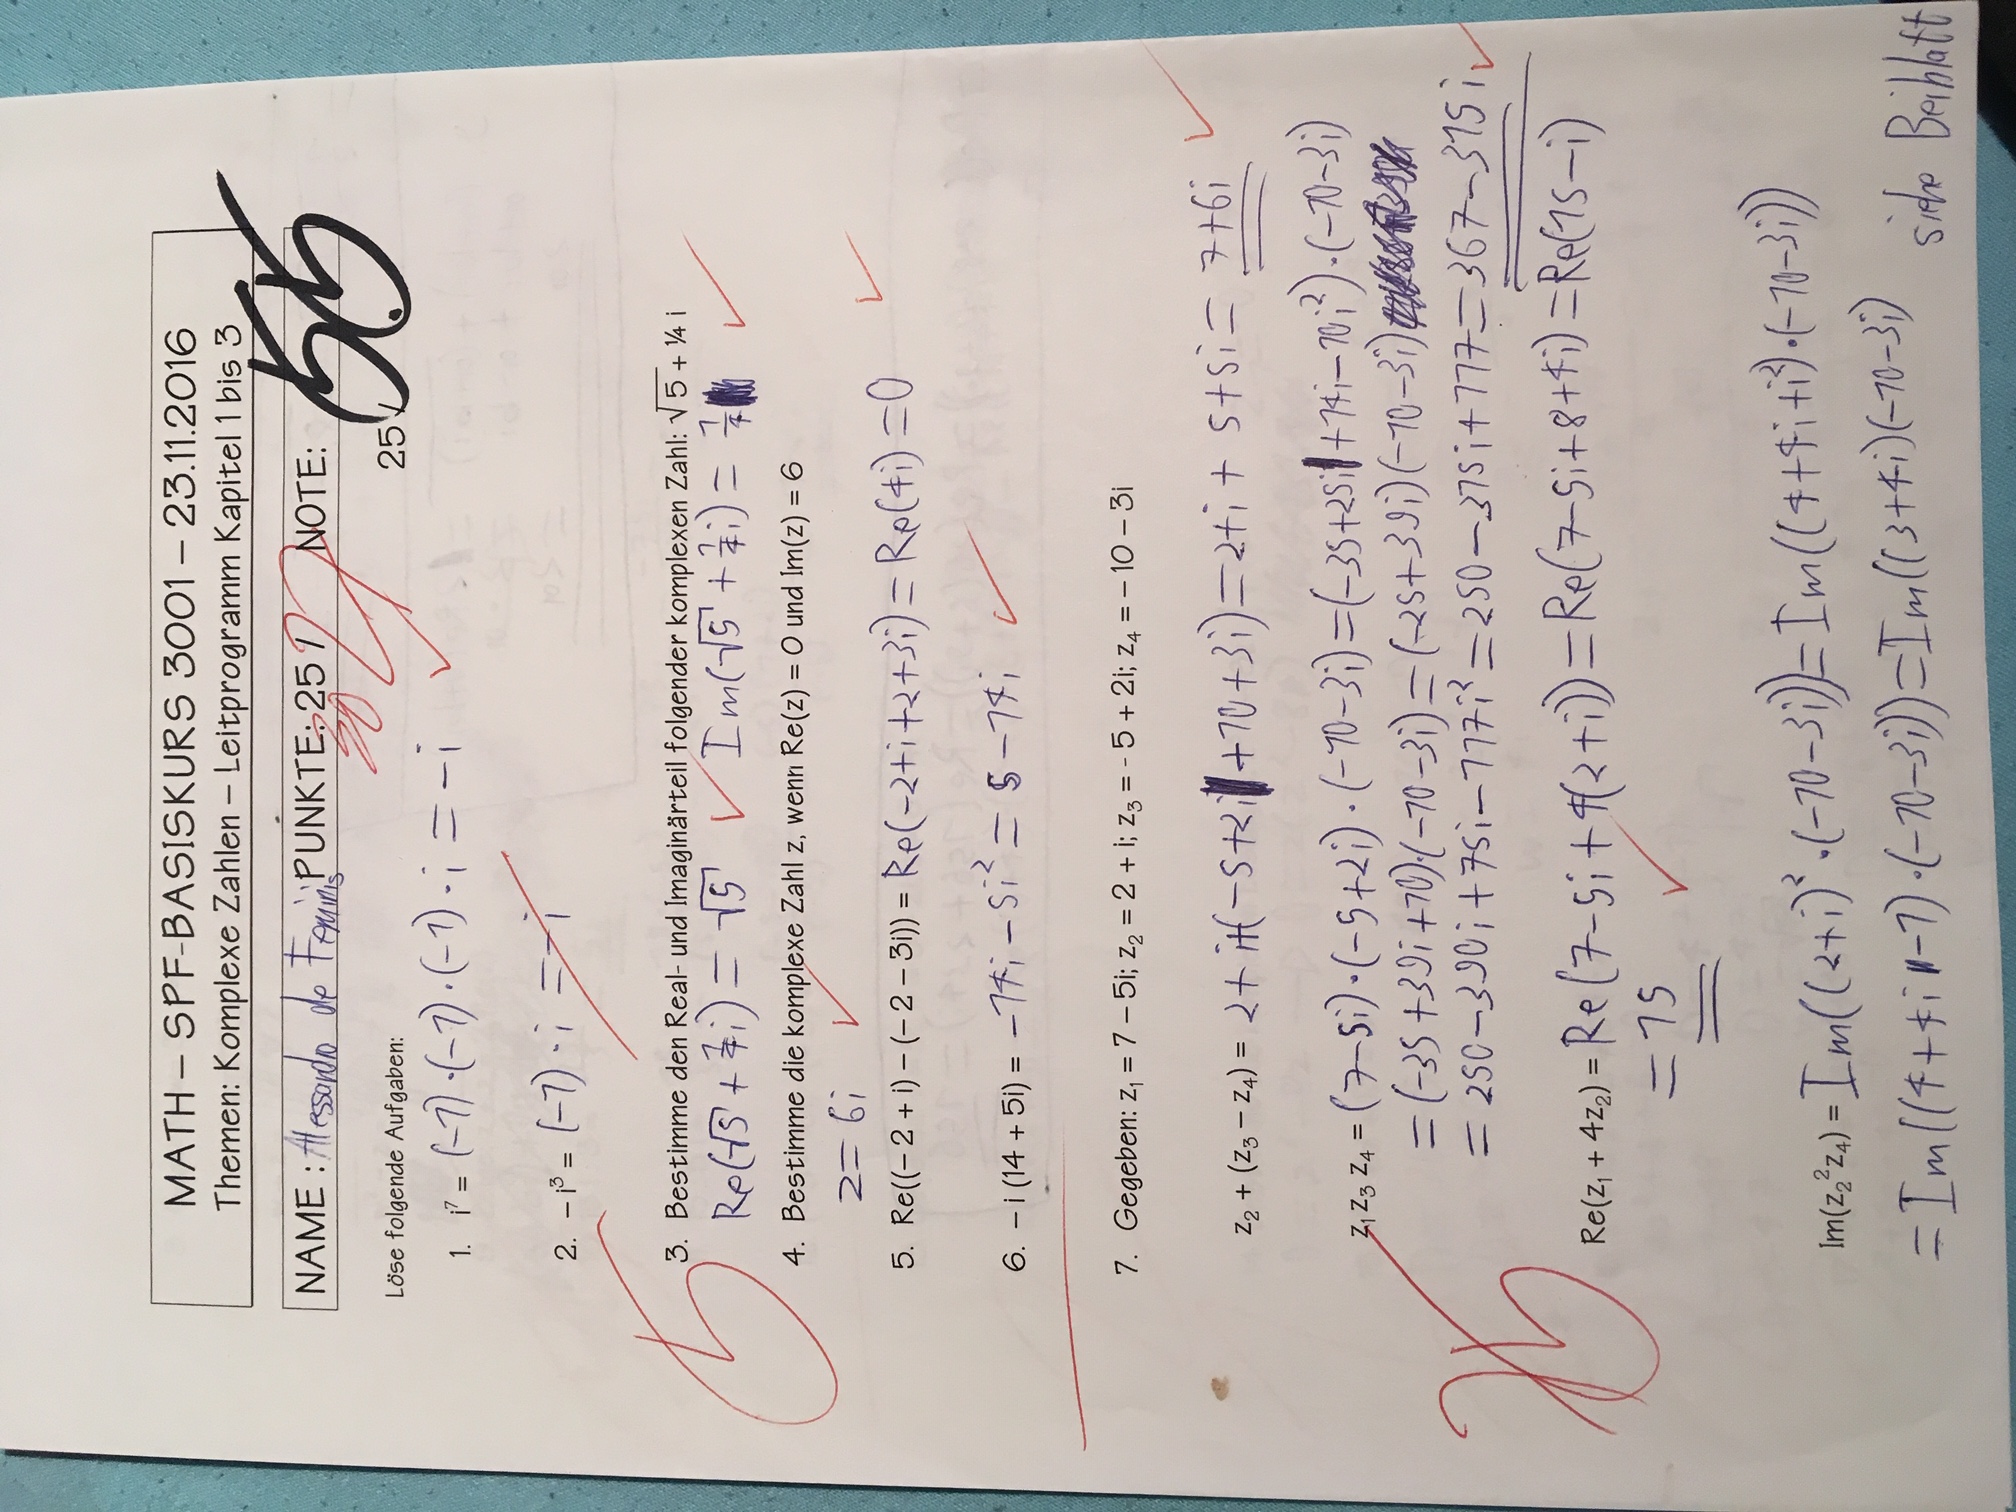 MATH – SPF-BASISKURS 3001 – 23.11.2016
Themen: Komplexe Zahlen – Leitprogramm Kapitel 1 bis 3
NAME : Alessandro de Feminis PUNKTE: 25 / 27 NOTE: 5.5
30
Löse folgende Aufgaben: 25 /
1. i⁷ = (-1)·(-1)·(-1)·i = -i ✓
2. – i³ = (-1)·i = -i
5
3. Bestimme den Real- und Imaginärteil folgender komplexen Zahl: √5 + ¼ i
Re(√5 + ¼i) = √5 ✓ Im(√5 + ¼i) = ¼ ✓
4. Bestimme die komplexe Zahl z, wenn Re(z) = 0 und Im(z) = 6
z = 6i ✓
5. Re((– 2 + i) – (– 2 – 3i)) = Re(-2+i+2+3i) = Re(4i) = 0 ✓
6. – i (14 + 5i) = -14i - 5i² = 5 - 14i ✓
7. Gegeben: z₁ = 7 – 5i; z₂ = 2 + i; z₃ = - 5 + 2i; z₄ = – 10 – 3i
z₂ + (z₃ – z₄) = 2+i+(-5+2i+10+3i) = 2+i + 5+5i = 7+6i ✓
z₁ z₃ z₄ = (7-5i)·(-5+2i)·(-10-3i) = (-35+25i+14i-10i²)·(-10-3i)
= (-35+39i+10)·(-10-3i) = (-25+39i)(-10-3i)
= 250-390i+75i-117i² = 250-315i+117 = 367-315i ✓
Re(z₁ + 4z₂) = Re(7-5i+4(2+i)) = Re(7-5i+8+4i) = Re(15-i)
= 15 ✓
Im(z₂²z₄) = Im((2+i)²·(-10-3i)) = Im((4+4i+i²)·(-10-3i))
= Im((4+4i-1)·(-10-3i)) = Im((3+4i)(-10-3i) siehe Beiblatt